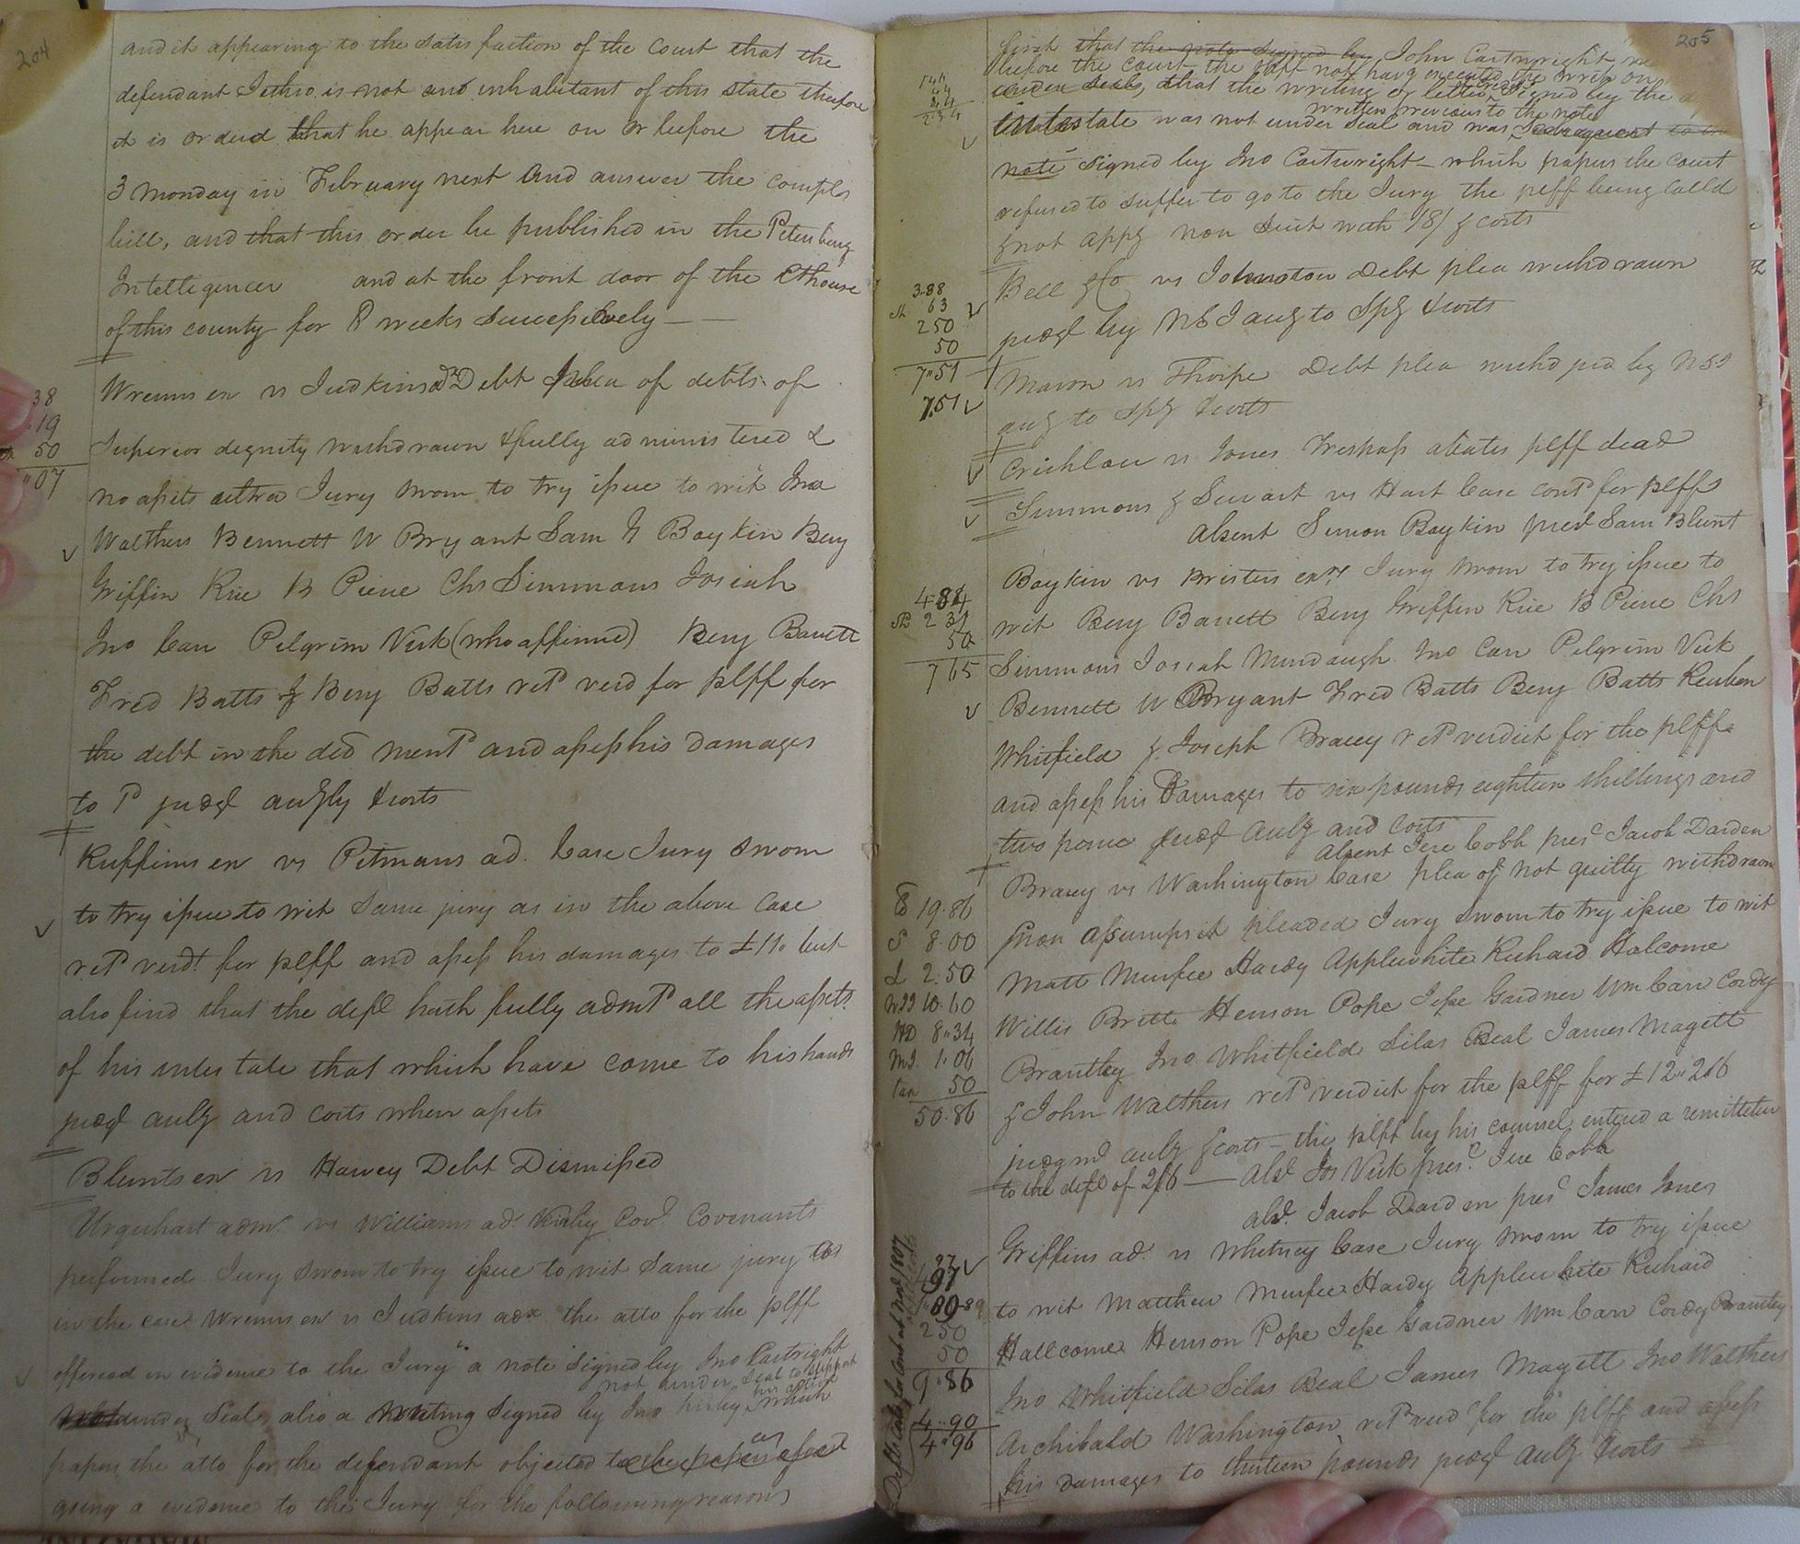 204
and it appearing to the satisfaction of the court that the
defendant Jethro is not an inhabitant of this state therefore
it is ordered that he appear here on or before the
3 Monday in February next and answer the compls
bill, and that this order be published in the Petersburg
Intelligencer and at the front door of the Chouse
of this county for 8 weeks successively
38
19
50
07
Wrenns ex vs Judkins adr Debt plea of debts of
superior dignity withdrawn & fully administered &
no assets ultra Jury sworn to try issue to wit Jno
Walthers Bennett W Bryant Sam Boykin Benj
Griffin Rice B Pierce Chs Simmons Josiah
Jno Carr Pilgrim Vick (who affirmed) Benj Barrett
Fred Batts & Benj Batts retd verd for plff for
the debt in the decl mentd and assess his damages
to 1d judgt accgly & costs
Ruffins ex vs Pitmans ad. Case Jury sworn
to try issue to wit same jury as in the above case
retd verdt for plff and assess his damages to £110 but
also find that the deft hath fully admd all the assets
of his intestate that which have come to his hands
judgt accg and costs when assets
Blunts ex vs Harvey Debt Dismissed
Urquhart admr vs Williams ad. Kirby Covt. Covenants
performed Jury sworn to try issue to wit same jury as
in the case Wrenns ex vs Judkins adr the atto for the plff
offered in evidence to the Jury a note signed by Jno Cartright
not under seal to support his action
under seal, also a writing signed by Jno Kirby which
papers the atto for the defendant objected to the papers afored
as
going a evidence to the Jury for the following reasons
205
first that the note signed by John Cartwright
before the court the plff not havg executed the writ on
under seal, that the writing or letter signed by the
written previous to the note
intestate was not under seal and was subsequent to the
note signed by Jno Cartwright which papers the court
refused to suffer to go to the Jury the plff being called
& not appg non suit with /8/ & costs
3.88
63
250
50
7.51
Bell & Co vs Johnston Debt plea withdrawn
judgt by NSI accg to Spy & costs
7.51
Mason vs Thorpe Debt plea withd jud by NSI
accg to Spy & costs
Crichlow vs Jones Trespass abates plff dead
Simmons & Stewart vs Hart Case contd for plff
Absent Simon Boykin prest Sam Blunt
4.84
2 31
50
7 65
Boykin vs Bristers exr Jury sworn to try issue to
wit Benj Barrett Benj Griffin Rice B Pierce Chs
Simmons Josiah Mundaugh Jno Carr Pilgrim Vick
Bennett W Bryant Fred Batts Benj Batts Reuben
Whitfield & Joseph Bracey retd verdict for the plff
and assess his damages to six pounds eighteen shillings and
two pence judgt accg and costs
Absent Jere Cobb prest Jacob Darden
19.86
S 8.00
2.50
10.60
8.34
1.06
50
50.86
Bracey vs Washington Case plea of not guilty withdrawn
& non assumpsit pleaded Jury sworn to try issue to wit
Matt Murfee Hardy Applewhite Richard Halcome
Willis Britt Henson Pope Jesse Gardner Wm Carr Cordy
Brantley Jno Whitfield Silas Beal James Magett
& John Walthers retd verdict for the plff for £12..2.6
judgmt accg & costs – the plff by his counsel entered a remittitur
to the deft of 2/6 — Abst. Jos Vick prest. Jere Cobb
Abst. Jacob Darden prest James Jones
250
50
9.86
4.90
4.96
Griffins ad. vs Whitney Case Jury sworn to try issue
to wit Matthew Murfee Hardy Applewhite Richard
Hallcome Henson Pope Jesse Gardner Wm Carr Cordy Brantley
Jno Whitfield Silas Beal James Magett Jno Walthers
Archibald Washington retd verd for the plff and assess
his damages to thirteen pounds judgt accg & costs